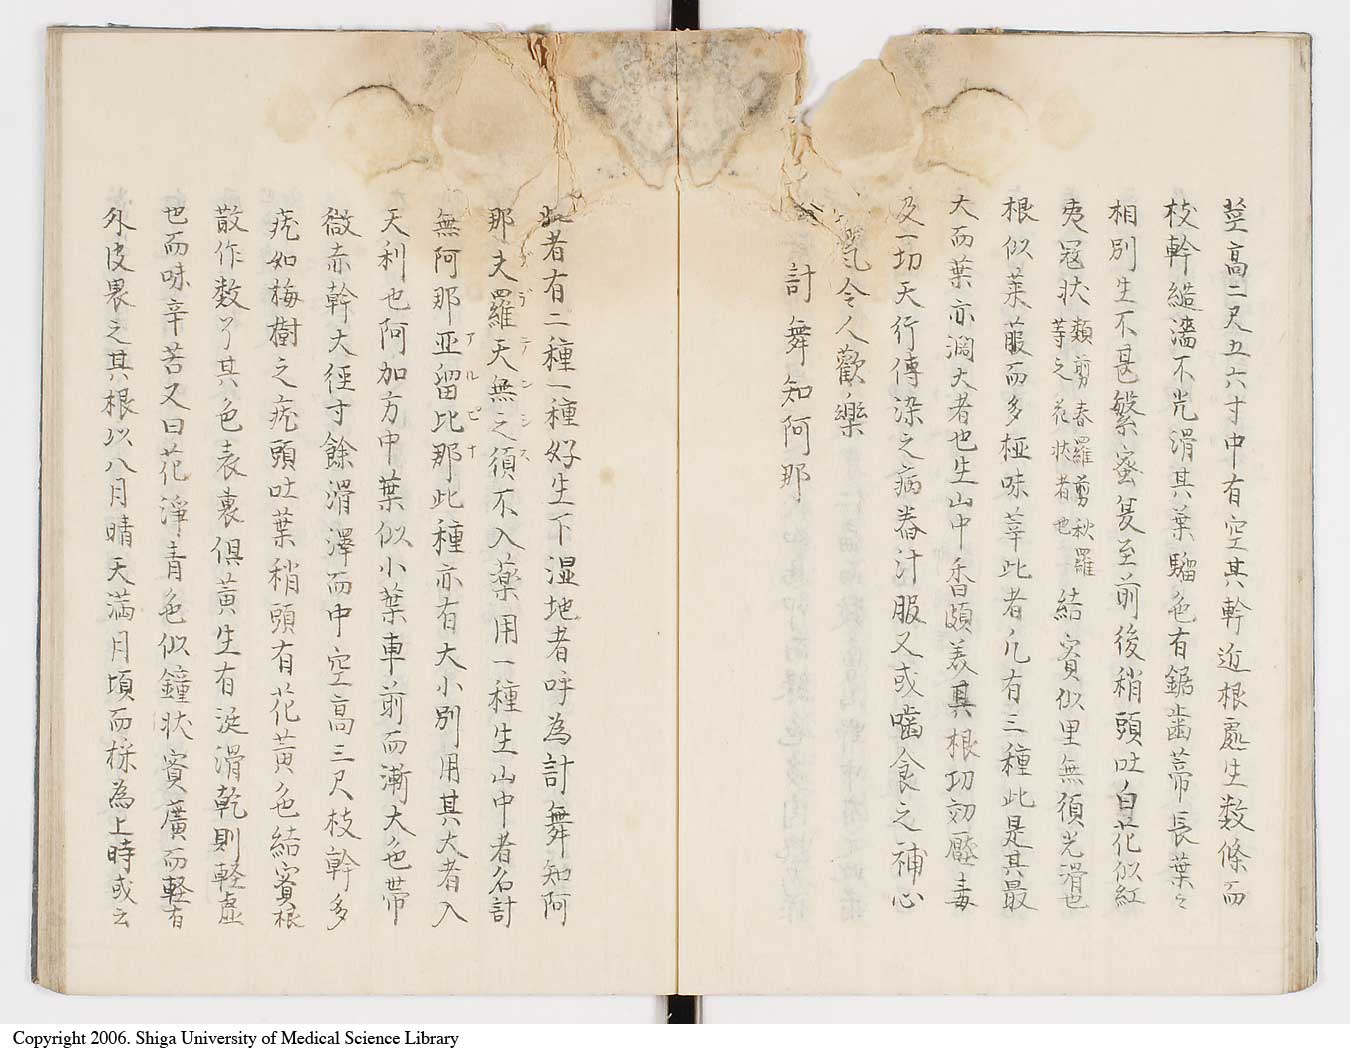 莖高二尺五六寸中有空其幹近根處生数條而
枝幹縒濇不光滑其葉騮色有鋸歯蔕長葉〻
相別生不甚繁蜜夏至前後稍頭吐白花似紅
夷冠状類剪春羅剪秋羅等之花状者也結實似里無須光滑也
根似莱菔而多極味辛此者凢有三種此是其最
大而葉亦濶大者也生山中香頗美其根切効壓毒
及一切天行傳染之病搼汁服又或嚙食之補心
氣令人歡樂
計舞知阿那
者有二種一種好生下湿地者呼為計舞知阿
那夫羅天無之須不入薬用一種生山中者名計
ブラテンシス
無阿那亚留比那此種亦有大小別用其大者入
アルビナ
天利也阿加方中葉似小葉車前而漸大色帯
微赤幹大徑寸餘滑澤而中空高三尺枝幹多
疣如梅樹之疣頭吐葉稍頭有花黄色結實根
散作数了其色表裏俱黄生有涎滑乾則軽虚
也而味辛苦又曰花淨青色似鐘状實廣而軽有
外皮畏之其根以八月晴天満月頃而採為上時或云
Copyright 2006. Shiga University of Medical Science Library